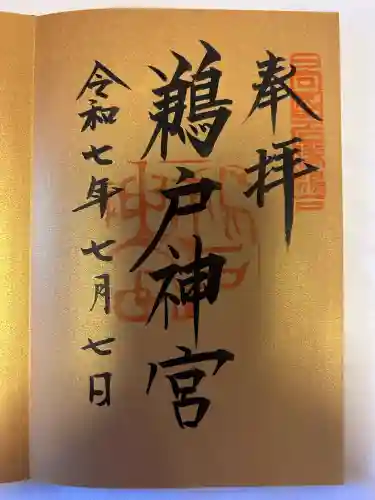 奉拝
鵜戸神宮
令和七年七月七日